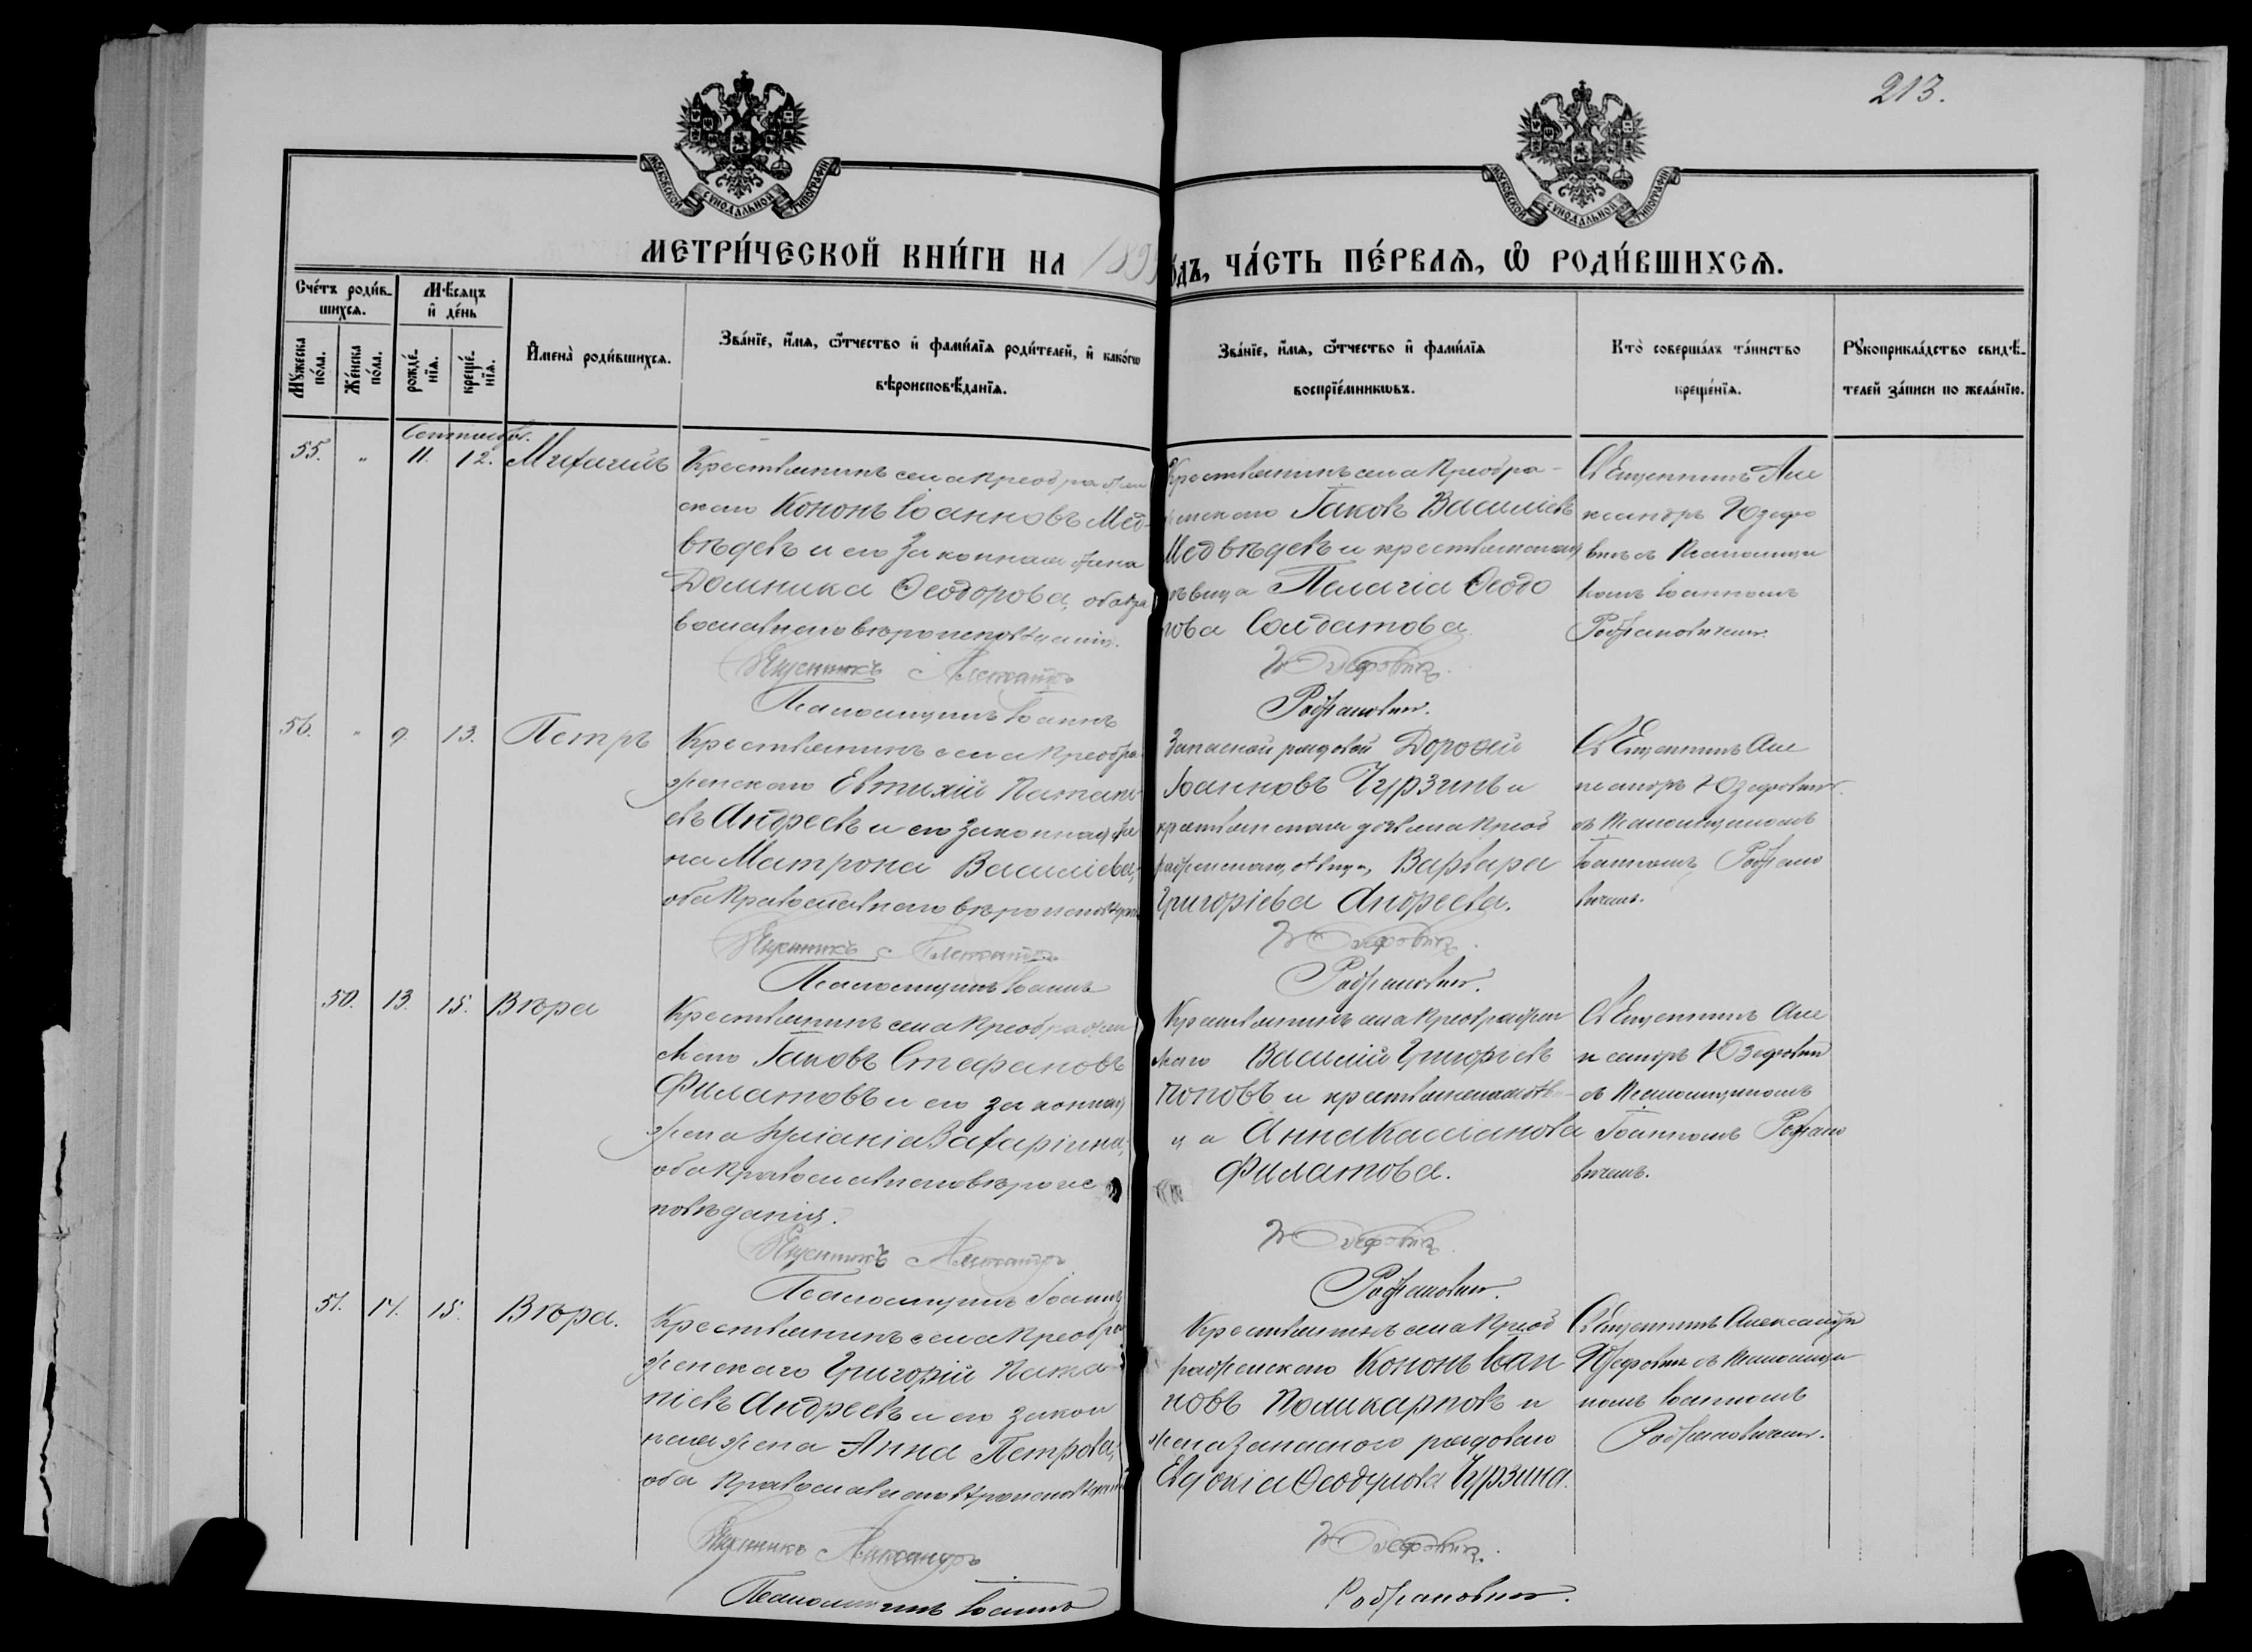 213.
МОСКОВСКОЙ СѴНОДАЛЬНОЙ ТИПОГРАФІИ
МОСКОВСКОЙ СѴНОДАЛЬНОЙ ТИПОГРАФІИ
МЕТРИ́ЧЕСКОЙ КНИ́ГИ НА 189
о́дъ, ЧА́СТЬ ПЕ́РВАѦ, Ѡ҆ РОДИ́ВШИХСѦ.
Сче́тъ роди́в-
шихсѧ.
Мꙋ́жеска по́ла.
Же́нска по́ла.
Мѣ́сѧцъ и҆ де́нь
рожде́нїѧ.
креще́нїѧ.
И҆мена̀ роди́вшихсѧ.
Зва́нїе, и҆́мѧ, ѻ҆́тчество и҆ фами́лїѧ роди́телей, и҆ како́гѡ
вѣроисповѣ́данїѧ.
Зва́нїе, и҆́мѧ, ѻ҆́тчество и҆ фами́лїѧ
воспрїе́мникѡвъ.
Кто̀ соверша́лъ та́инство
креще́нїѧ.
Рꙋкоприкла́дство свидѣ́-
телей за́писи по жела́нїю.
Сентября.
55. " 11. 12. Михаилъ
Крестьянинъ села Преображен
скаго Кононъ Іоанновъ Мед-
вѣдевъ и его законная жена
Домника Ѳеодорова, оба пра
вославнаго вѣроисповѣданія.
Священникъ Александръ
Псаломщикъ Іоаннъ
Крестьянинъ села Преобра-
женскаго Іаковъ Василіевъ
Медвѣдевъ и крестьянская
дѣвица Пелагія Ѳеодо
рова Солдатова
Юзефовичъ.
Робжановичъ.
Священникъ Але
ксандръ Юзефо
вичъ съ Псаломщи
комъ Іоанномъ
Робжановичемъ.
56. " 9. 13. Петръ
Крестьянинъ села Преобра
женскаго Евтихій Патапі
евъ Андреевъ и его законная же
на Матрона Василіева,
оба Православнаго вѣроисповѣдан
Священникъ Александръ
Псаломщикъ Іоаннъ
Запасной рядовой Дороѳей
Іоанновъ Чурзинъ и
крестьянская дочь села Преоб
раженскаго, дѣвица, Варвара
Григоріева Андреева.
Юзефовичъ.
Робжановичъ.
Священникъ Але
ксандръ Юзефовичъ
съ Псаломщикомъ
Іоанномъ Робжано
вичемъ.
50. 13. 15. Вѣра
Крестьянинъ села Преображен
скаго Іаковъ Стефановъ
Филатовъ и его законная
жена Іуліанія Захаріина,
оба Православнаго вѣроис
повѣданія.
Священникъ Александръ
Псаломщикъ Іоаннъ
Крестьянинъ села Преображен
скаго Василій Григоріевъ
Поповъ и крестьянская дѣви
ца Анна Касіанова
Филатова.
Юзефовичъ
Робжановичъ.
Священникъ Але
ксандръ Юзефовичъ
съ Псаломщикомъ
Іоанномъ Робжано
вичемъ.
51. 14. 15. Вѣра.
Крестьянинъ села Преобра
женскаго Григорій Пата-
піевъ Андреевъ и его закон
ная жена Анна Петрова,
оба Православнаго вѣроисповѣданія
Священникъ Александръ
Псаломщикъ Іоаннъ
Крестьянинъ села Преоб
раженскаго Кононъ Іоан
новъ Поликарповъ и
жена запаснаго рядоваго
Евдокія Ѳеодулова Чурзина.
Юзефовичъ.
Робжановичъ.
Священникъ Александръ
Юзефовичъ съ Псаломщи
комъ Іоанномъ
Робжановичемъ.